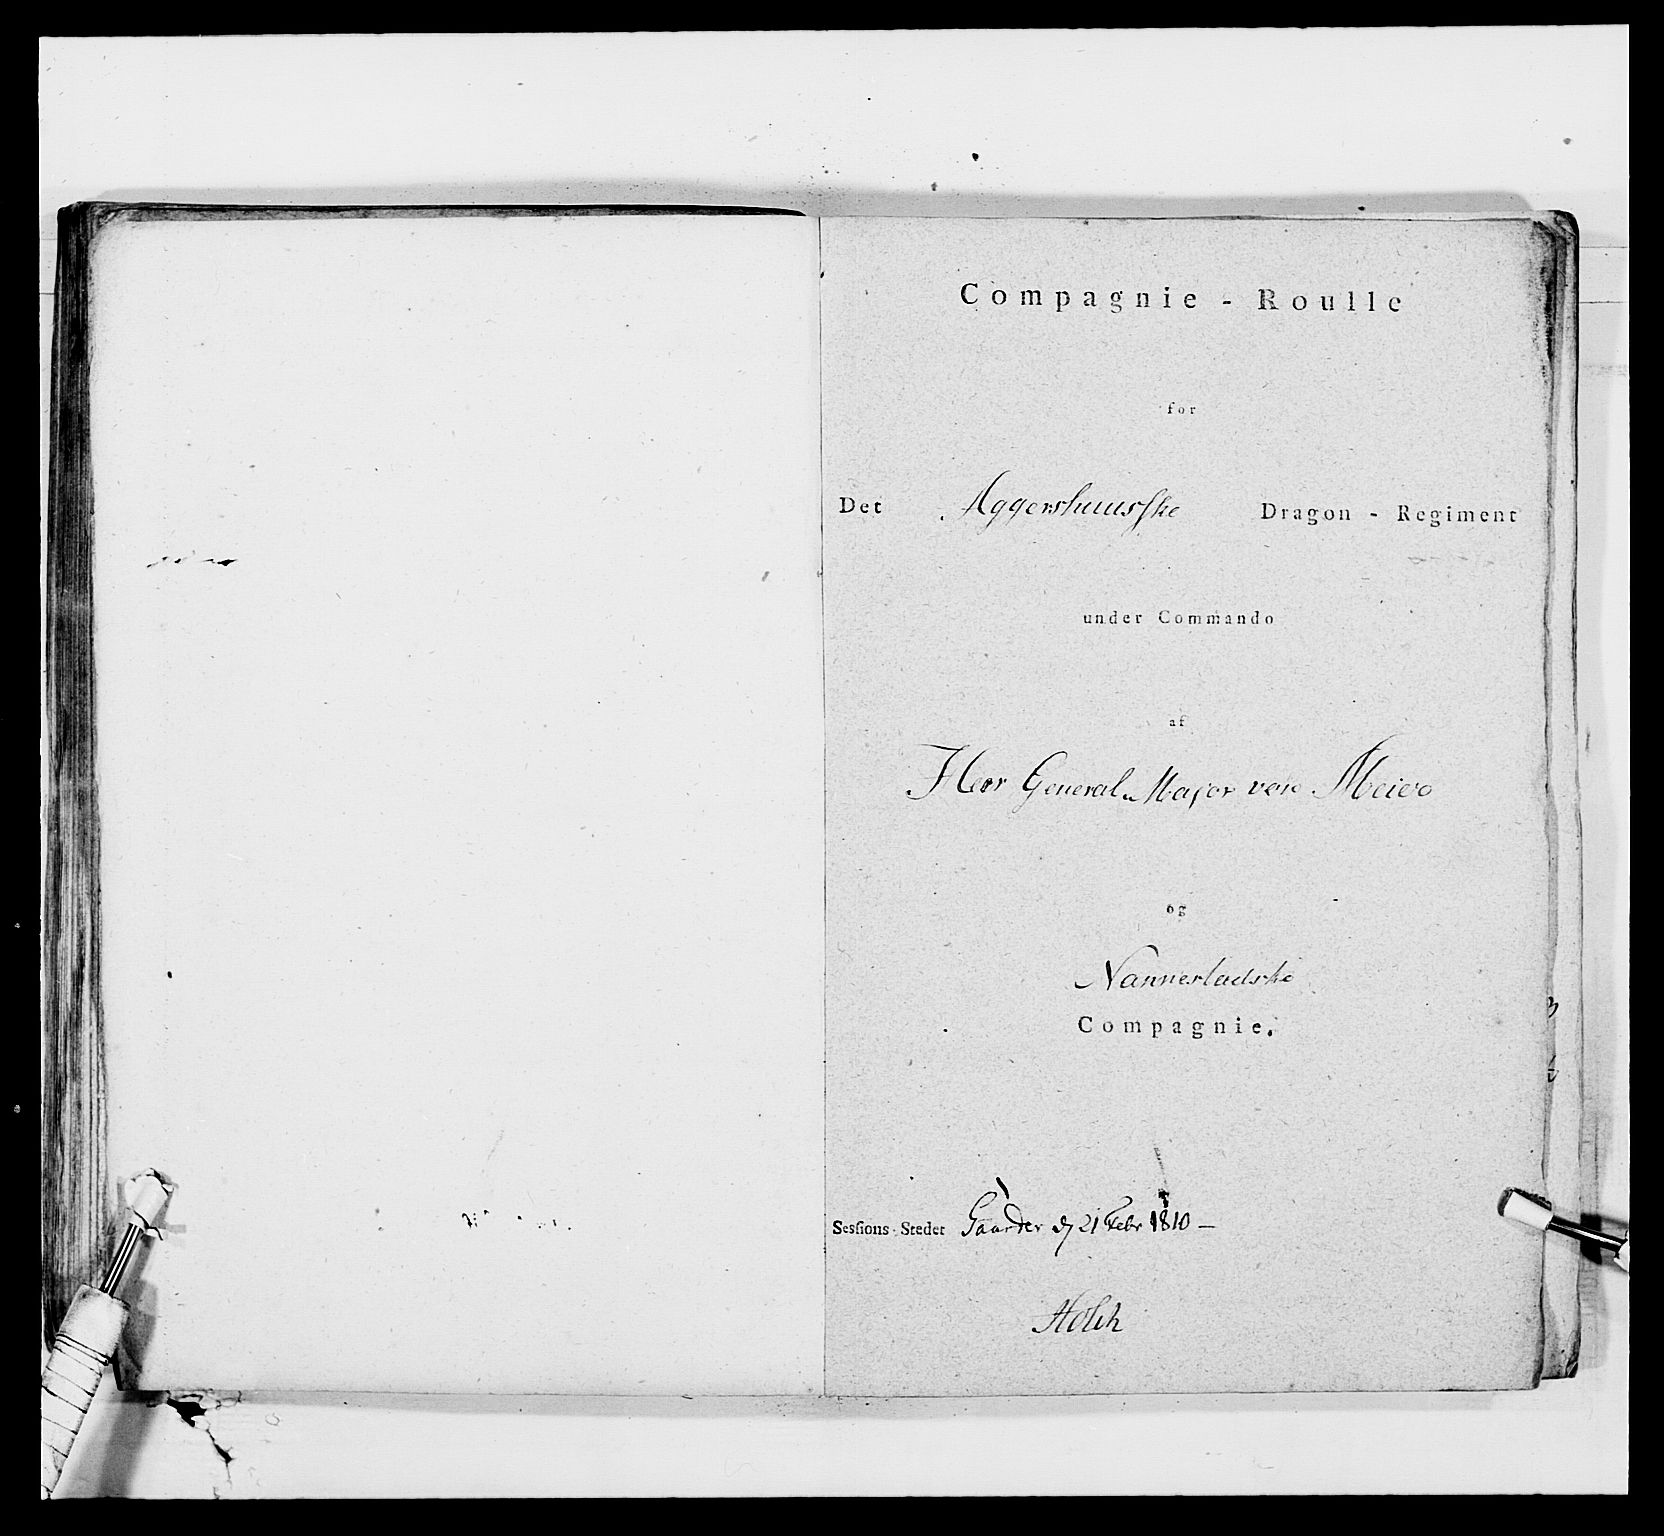 Compagnie - Roulle
for
Det Aggershuusske Dragon - Regiment
under Commando
af
Herr General Major von Meier
og
Nannestadske
Compagnie.
Sessions-Stedet Gaarder d 21 Febr 1810 —
Holck